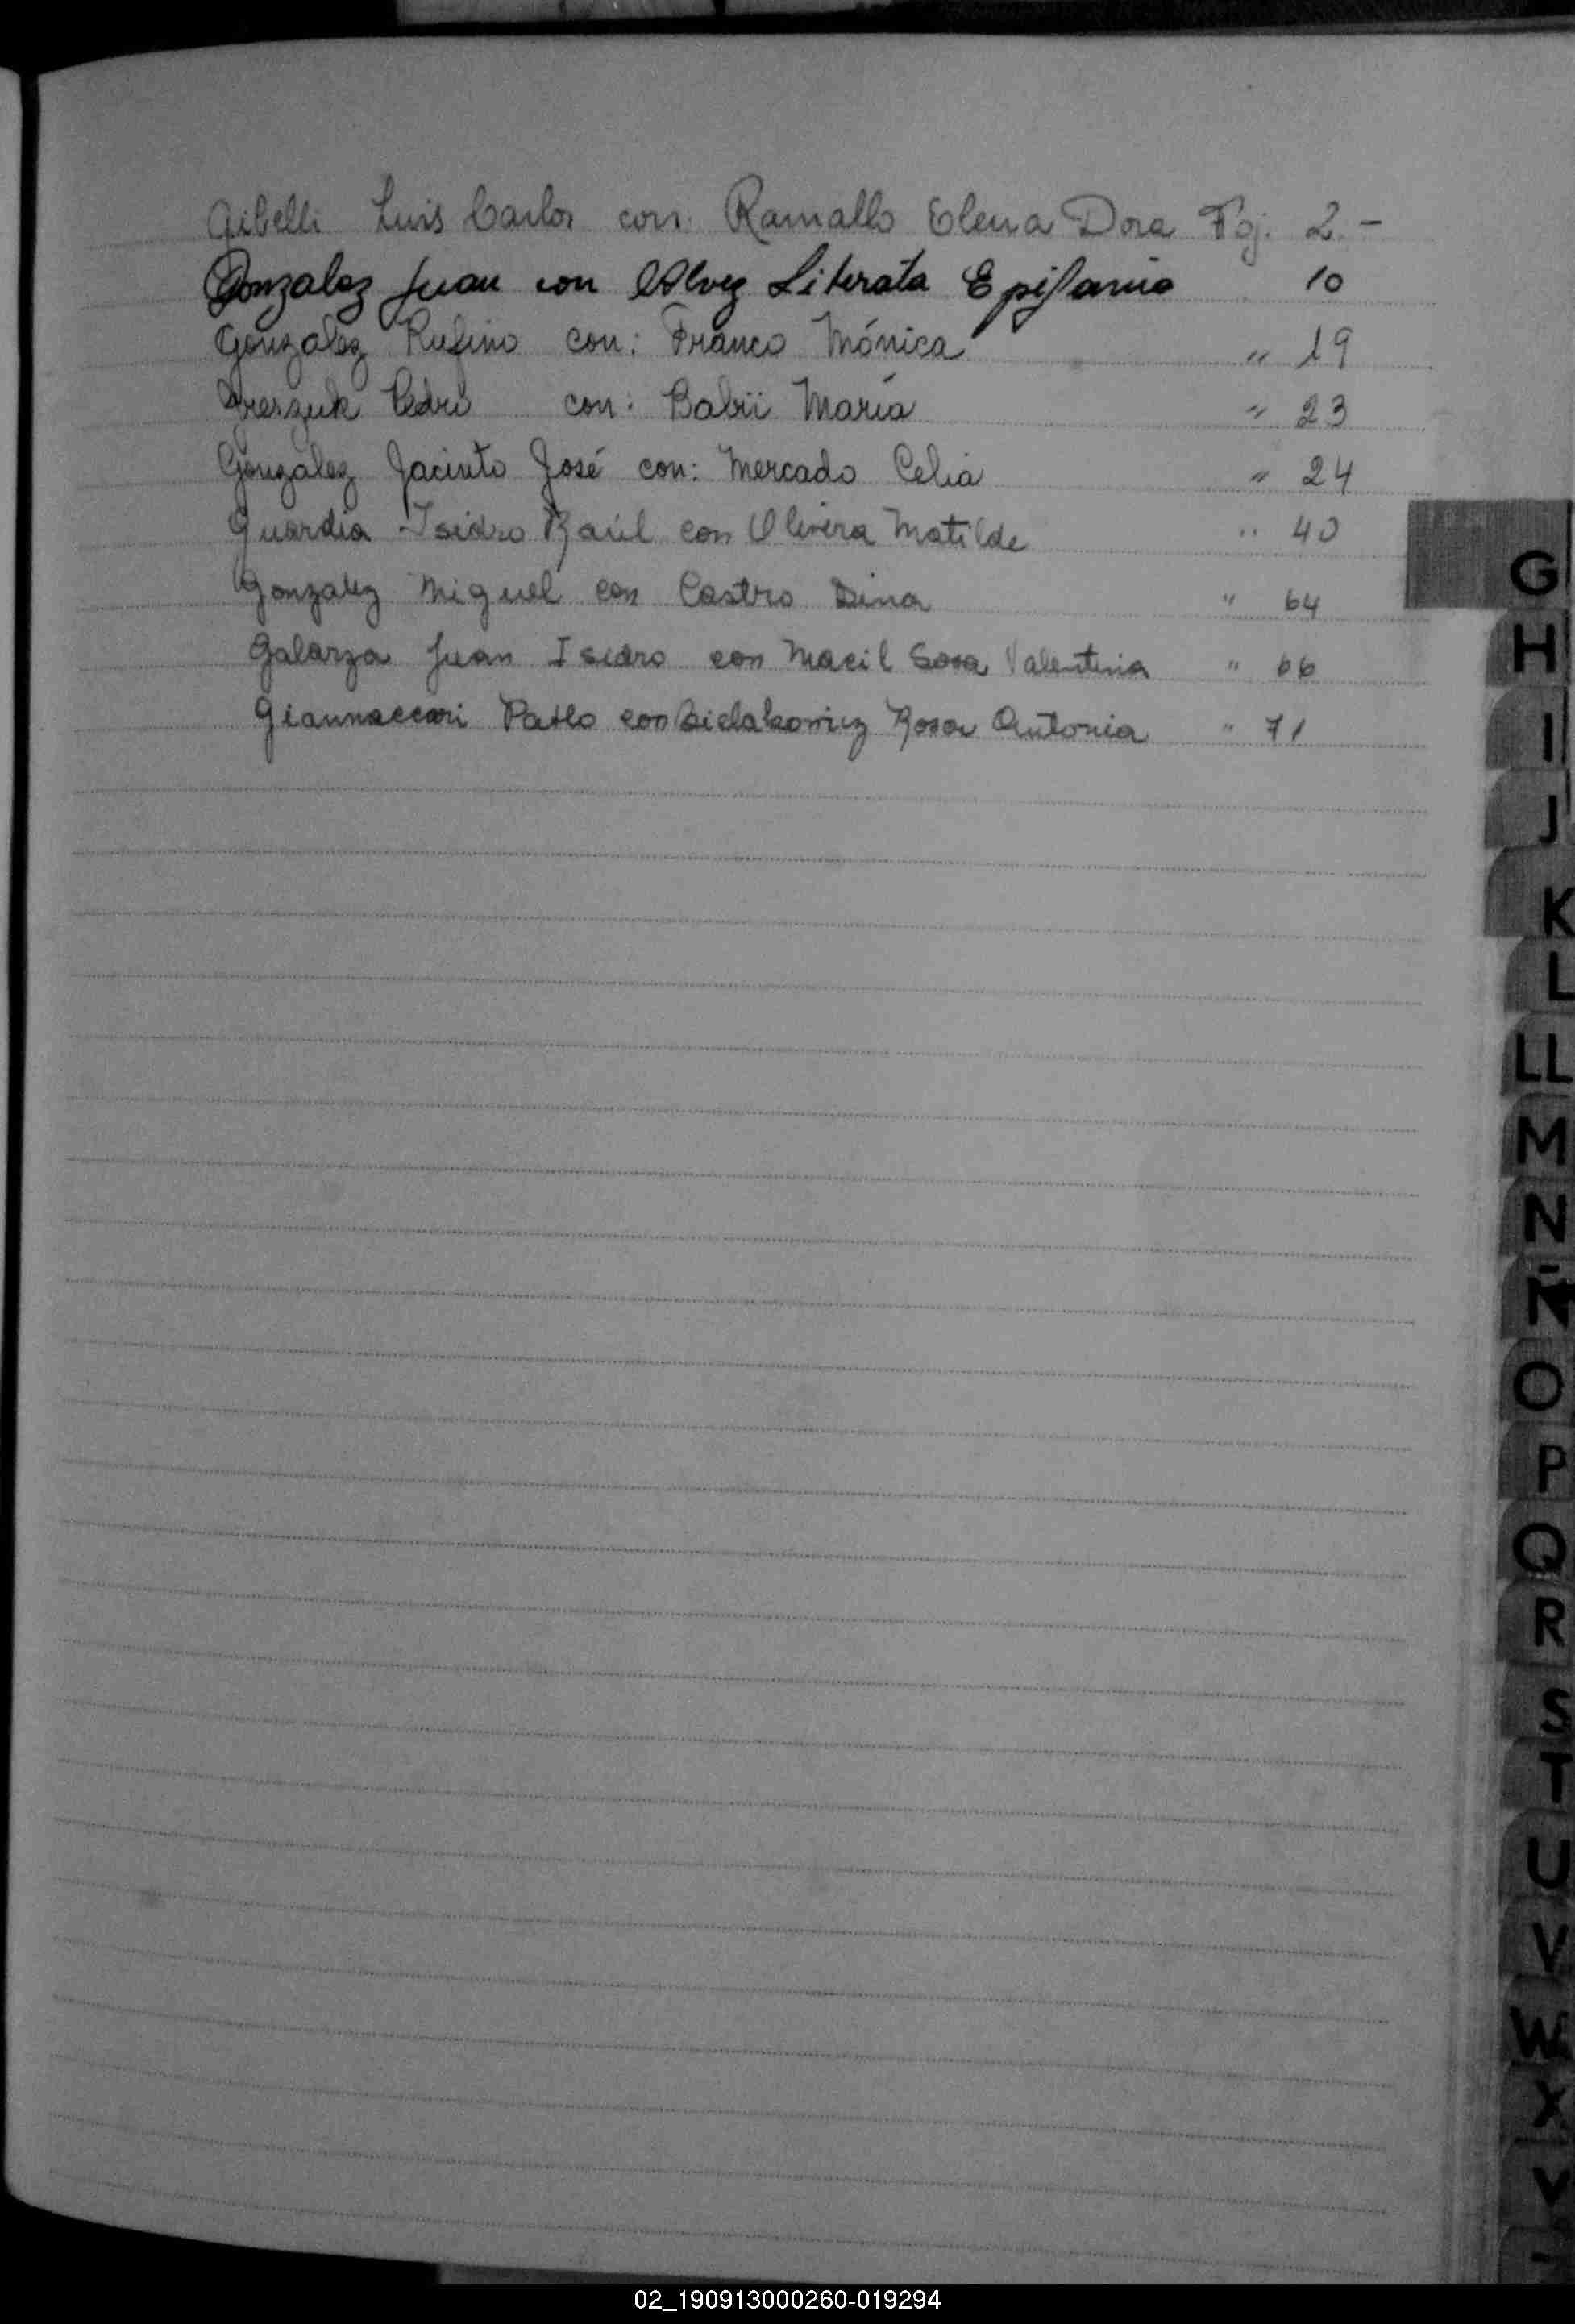 Gibelli Luis Carlos con: Ramallo Elena Dora Foj. 2.-
Gonzalez Juan con Alvez Liberata Epifania 10
Gonzalez Rufino con: Franco Mónica " 19
Greszuk Pedro con: Babii María " 23
González Jacinto José con: Mercado Celia " 24
Guardia Isidro Raúl con Olivera Matilde " 40
Gonzalez Miguel con Castro Dina " 64
Galarza Juan Isidro con Macil Sosa Valentina " 66
Giannaccari Pablo con Bielakowicz Rosa Antonia " 71
G
H
I
J
K
L
LL
M
N
Ñ
O
P
Q
R
S
T
U
V
W
X
Y
02_190913000260-019294